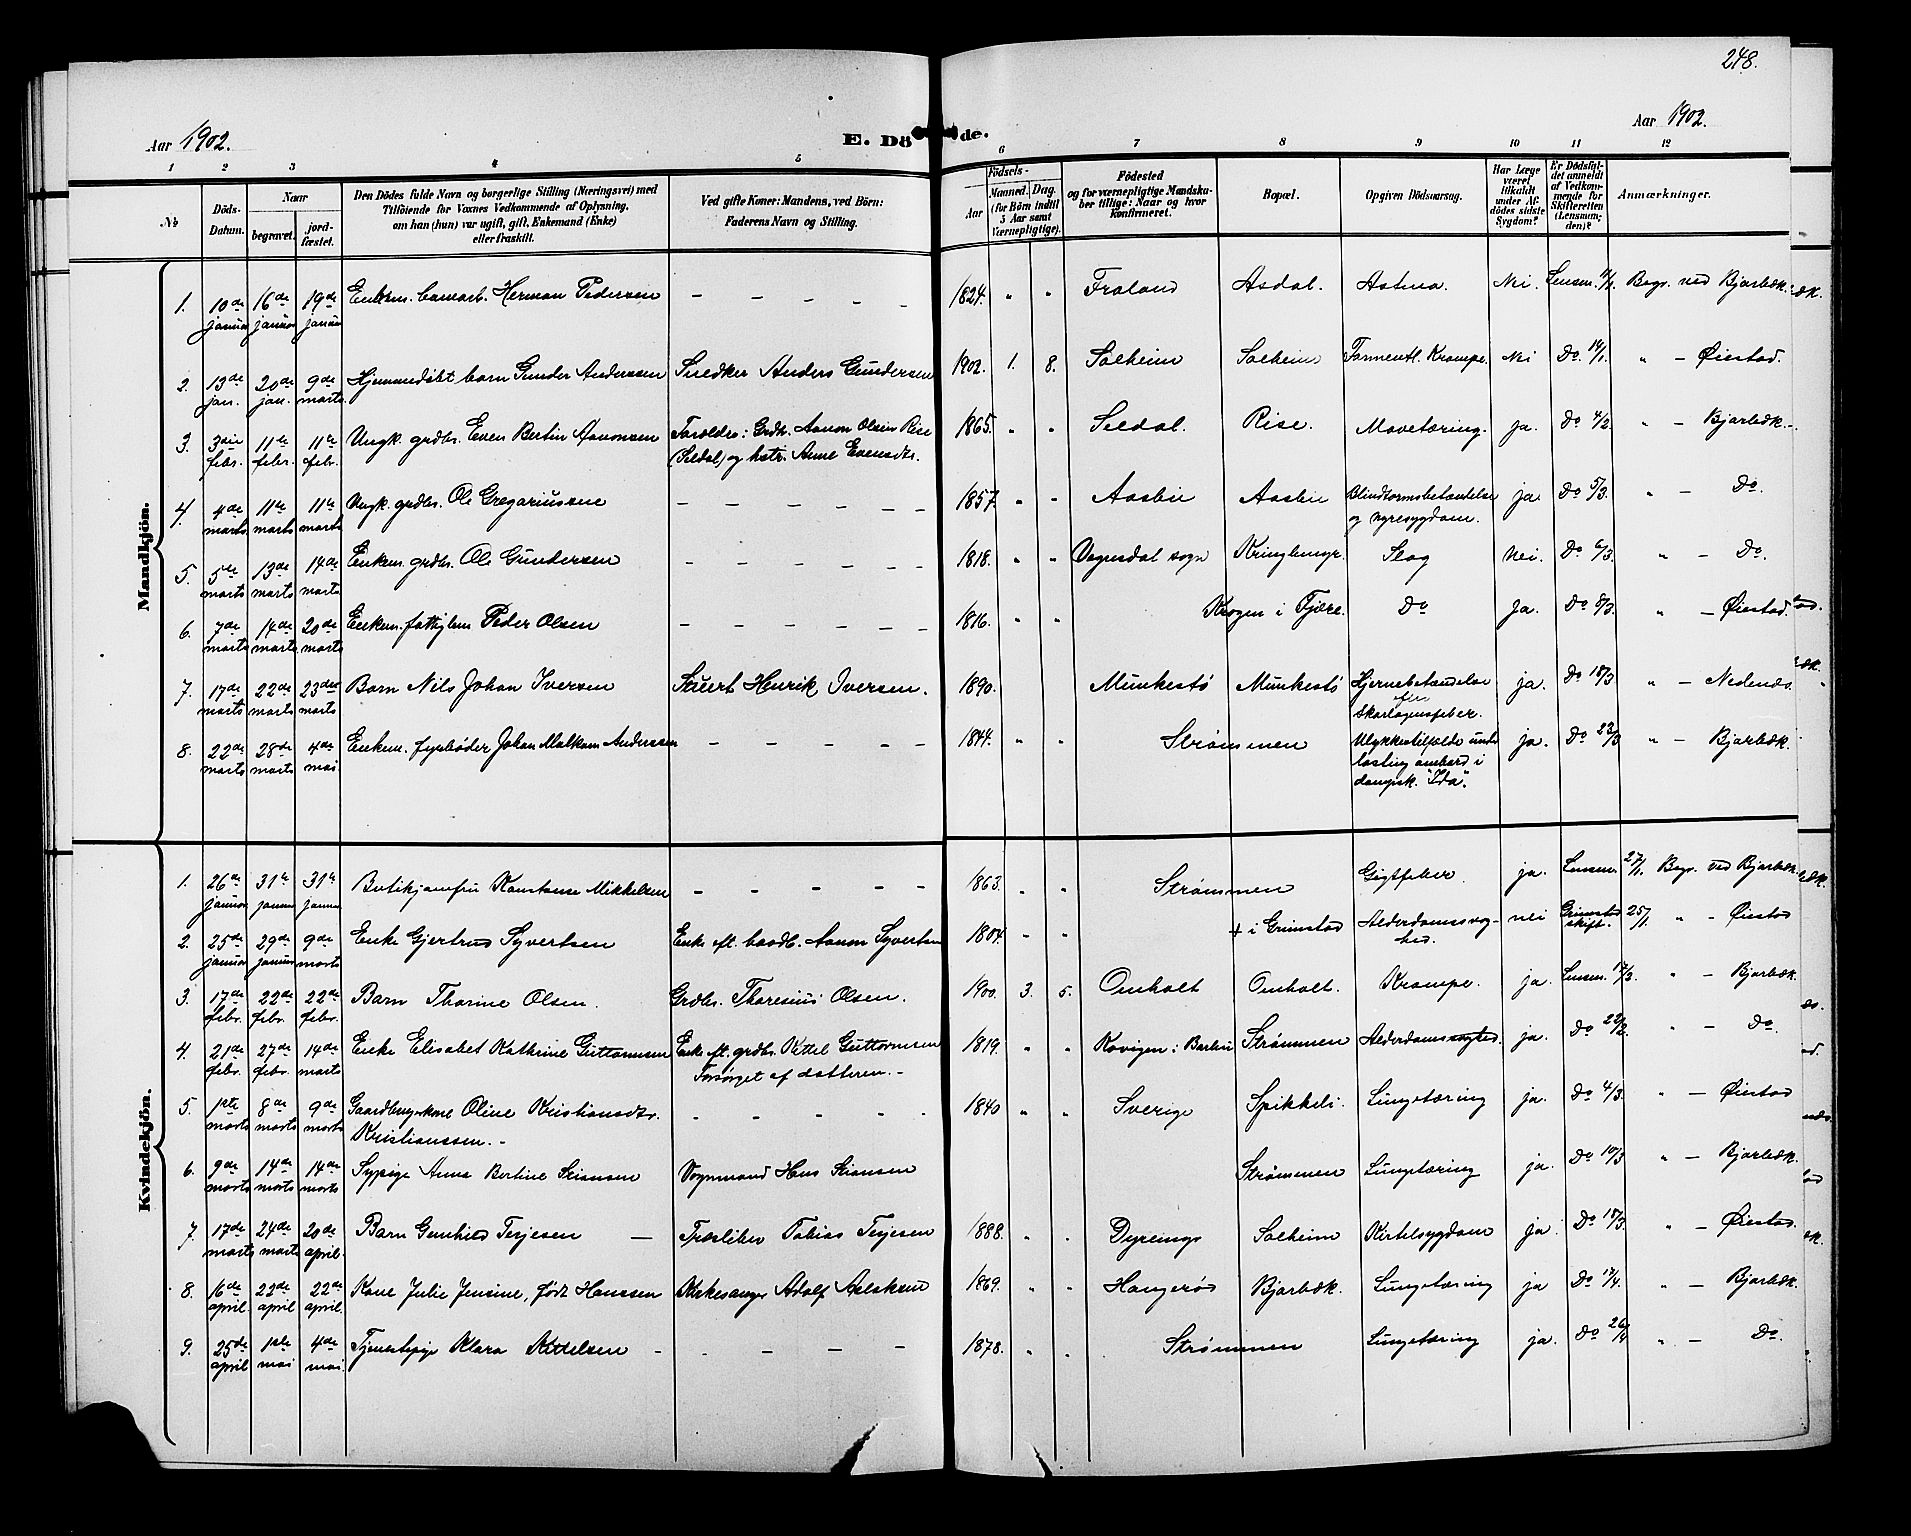 248.
Aar 1902.
E. Dö de.
Aar 1902.
1 2 3 4 5 6 7 8 9 10 11 12
№
Döds-
Datum.
Naar
begravet.
jord-
fæstet.
Den Dödes fulde Navn og borgerlige Stilling (Næringsvei) med
Tilföiende for Voxnes Vedkommende af Oplysning,
om han (hun) var ugift, gift, Enkemand (Enke)
eller fraskilt.
Ved gifte Koner: Mandens, ved Börn:
Faderens Navn og Stilling.
Födsels-
Aar
Maaned. Dag.
(for Börn indtil
5 Aar samt
Værnepligtige).
Födested
og for værnepligtige Mandska-
ber tillige: Naar og hvor
Konfirmeret.
Bopæl.
Opgiven Dödsaarsag.
Har Læge
været
tilkaldt
under Af-
dödes sidste
Sygdom?
Er Dödsfal-
det anmeldt
af Vedkom-
mende for
Skifteretten
(Lensman-
den)?
Anmærkninger.
Mandkjön.
1. 10de januar 16de januar 19de januar Enkem. Herman Pedersen – – – – – 1824. " " Froland Asdal. Astma. Nei. Lensm. 11/1 Begr. ved Bjorbæk.
2. 13de jan. 20de jan. 9de marts. Hjemmedøbt barn Gunder Anderssen Snedker Anders Gundersen 1902. 1. 8. Solheim Solheim Krampe. Nei Do. 14/1. " – Øiestad.
3. 3die febr. 11te febr. 11te febr. Ungk. grdbr. Even Bertin Aanonsen Forældre: Grdbr. Aanon Olsen Rise
(Seldal) og hstr. Anne Evensdtr. 1865. " " Seldal. Rise. Mavetæring. ja. Do 4/2 " – Bjorbæk.
4. 4de marts 11te marts 11te marts Ungk. grdbr. Ole Gregoriussen – – – – – – 1857. " " Aasbie Aasbie Blindtarmsbetændelse
og nyresygdom. ja. Do 5/3. " – Do.
5. 5te marts 13de marts 14de marts Enkem. grdbr. Ole Gundersen – – – – – – 1818. " " Vegusdal sogn Kringlemyr. Slag Nei. Do 6/3. " – Do.
6. 7de marts 14de marts. 20de marts Enkem. fattiglem Peder Olsen – – – – – – 1816. " " Krogen i Fjære. Do Ja. Do 8/3. " – Øiestad.
7. 17de marts 22de marts 23de marts Barn Nils Johan Iversen Stuert Henrik Iversen. 1890. Munkestø Munkestø Hjernebetændelse
efter
skarlagensfeber. ja. Do 18/3 " – Nedenæs.
8. 22de marts 28de marts 4de mai Enkem. fyrbøder Johan Malkom Anderssen – – – – 1844. " " Strømmen Ulykkestilfælde under
lastning ombord i
dampsk. "Ida". ja. Do 22/3 " – Bjorbæk.
Kvindekjön.
1. 26de januar 31te januar 31te januar Butikjomfru Konstanse Mikkelsen – – – – – 1863. " " Strømmen Gigtfeber. ja. Lensm. 27/1. Begr. ved Bjorbæk
2. 25de januar 29de januar 9de marts Enke Gjertrud Syvertsen Enke eft. baadb. Aanon Syvertsen 1804. " " + i Grimstad Alderdomssvag-
hed. nei Grimstad
skift. 25/1. " – Øiestad
3. 17de febr. 22de febr. 22de febr. Barn Thorine Olsen. Grdbr. Thoresius Olsen. 1900. 3. 5. Omholt Omholt. Krampe. ja. Lensm. 17/3. " – Bjorbæk.
4. 21de febr. 27de febr. 14de marts Enke Elisabet Kathrine Guttormsen Enke eft. grdbr. Kittel Guttormsen
Forsørget af datteren. – 1819. " " Kovigen i Barbu Strømmen ja. Do 22/2 " – Do.
5. 1ste marts 8de marts 9de marts Gaardbrugerkone Oline Kristiansdtr.
Kristianssen. – – – – – 1840 " " Sverige Spikkeli. Lungetæring ja. Do 4/3. " – Øiestad
6. 9de marts 14de marts 14de marts Sypige Anna Bertine Stiansen Vognmand Hans Stiansen Strømmen Lungetæring ja. Do 10/3 " – Bjorbæk.
7. 17de marts 24de marts 20de april. Barn Gunhild Terjesen – Tobias Terjesen 1888. " . Dyrengs Solheim Kirtelsygdom ja. Do 18/3 " – Øiestad.
8. 16de april 23de april 22de april. Kone Julie Jensine, født Hanssen Kirkesanger Adolf Aslaksen 1869. " . Bjorbæk. Lungetæring ja Do 17/4. " – Bjorbæk.
9. 25de april 1ste mai 4de mai. Tjenestepige Klara Kittelsen – – – – – 1878. " . Strømmen Lungetæring ja. Do 26/4 " – Do.